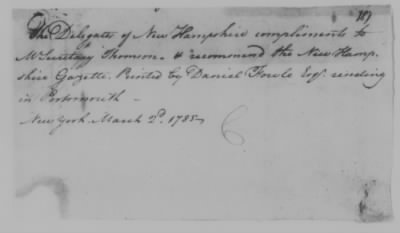 The Delegates of New Hampshire compliments to
Mr Secretary Thomson & recommend the New Hamp-
shire Gazette. Printed by Daniel Fowle Esqr. residing
in Portsmouth –
New York March 2d. 1785